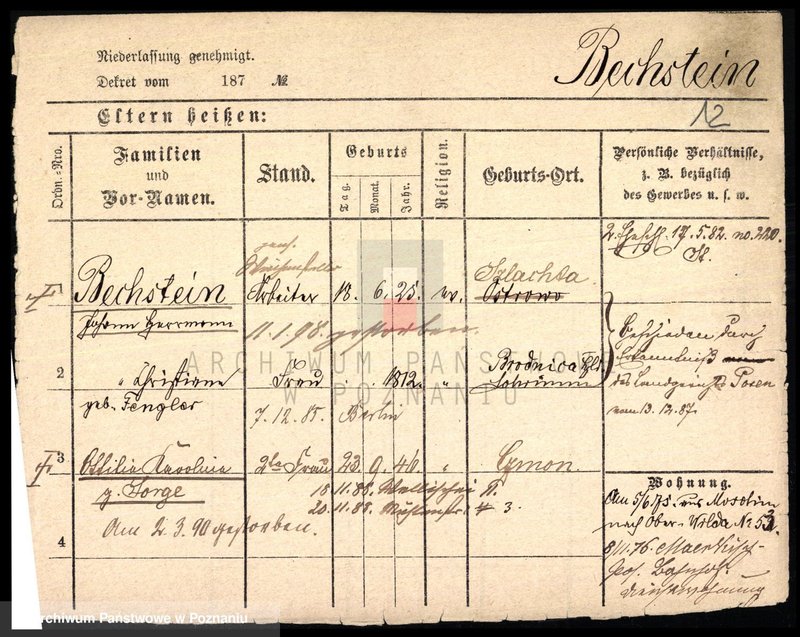 Niederlassung genehmigt.
Dekret vom 187 №
Bechstein
12
Eltern heißen:
Ordn.-Nro.
Familien
und
Vor-Namen.
Stand.
Geburts
Tag.
Monat.
Jahr.
Religion.
Geburts-Ort.
Persönliche Verhältnisse,
z. B. bezüglich
des Gewerbes u. s. w.
17.5.82. no. 220.
1
Bechstein
Johann Herrmann
pens.
Weichensteller
Arbeiter
18. 6. 25. ev.
Szlachta
Ostrowo
11.1.98. gestorben.
2
" Christiane
geb. Fengler
Frau
1812. "
Brodnica
7.12.85. Berlin
Geschieden durch
Erkenntniß
des Landgerichts Posen
vom 13.12.87.
3
Ottilie Karoline
g. Sorge
2te Frau 23. 9. 46. "
Czmon.
18.11.88. Wallischei
20.11.88. Mühlenstr. 3.
Am 2.3.90 gestorben.
4
Wohnung.
Am 5/6.75. aus Moschin
nach Ober-Wilda No 53
8/11.76.
Bahnhof.
Dienstwohnung
ARCHIWUM PAŃSTWOWE
W POZNANIU
Archiwum Państwowe w Poznaniu